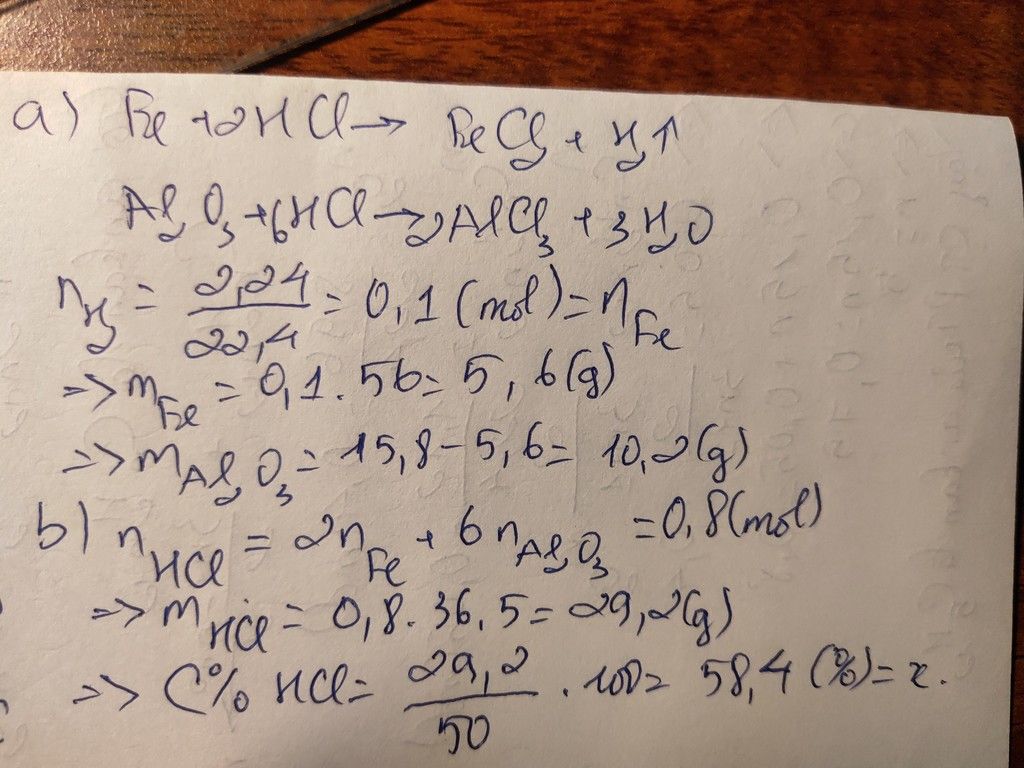 a) Fe + 2HCl → FeCl₂ + H₂↑
Al₂O₃ + 6HCl → 2AlCl₃ + 3H₂O
n_H₂ = 2,24/22,4 = 0,1 (mol) = n_Fe
=> m_Fe = 0,1 . 56 = 5,6 (g)
=> m_Al₂O₃ = 15,8 - 5,6 = 10,2 (g)
b) n_HCl = 2n_Fe + 6n_Al₂O₃ = 0,8 (mol)
=> m_HCl = 0,8 . 36,5 = 29,2 (g)
=> C% HCl = 29,2/50 . 100 = 58,4 (%) = x.